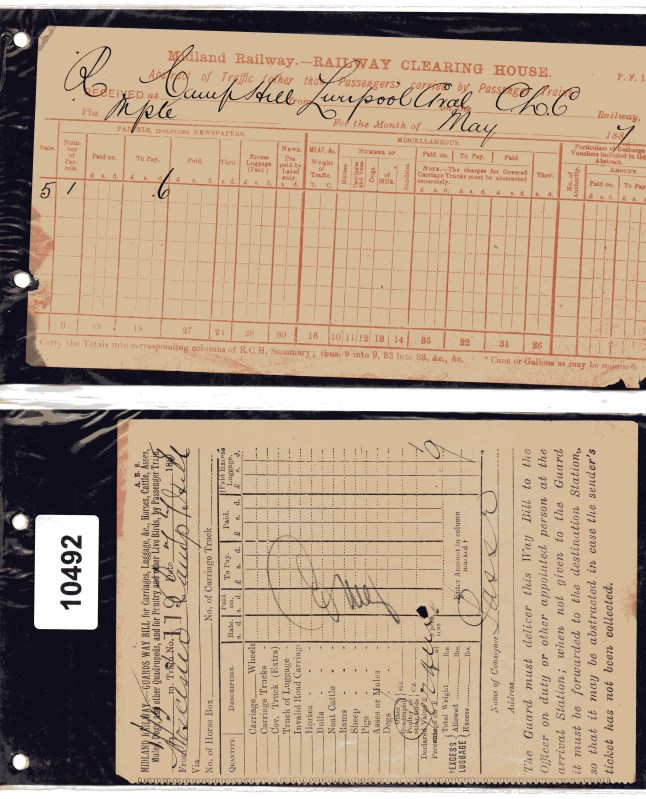 Midland Railway.—RAILWAY CLEARING HOUSE.
Abstract of Traffic (other than Passengers) carried by Passenger Trains
P. F. 1
RECEIVED at Camp Hill from Liverpool
Railway,
Via
For the Month of May 188
PARCELS, INCLUDING NEWSPAPERS.
MISCELLANEOUS.
Particulars of Recharge
Vouchers included in this
Abstract.
Date.
Number of Parcels.
Paid on.
To Pay.
Paid.
Thro'.
Excess Luggage (Paid)
NEWS. Prepaid by Label only.
MEAT, &c. Weight of Traffic.
NUMBER OF
Horses
Carriages and Vans
Dogs.
of Milk.
Sundries.
Paid on.
To Pay.
Paid
NOTE.—The charges for Covered Carriage Trucks must be abstracted separately.
Thro'.
No. of Authority.
AMOUNT.
Paid on.
To Pay
£ s. d.
T. C.
5 1 6
9
15
27
24
28
30
16
10 11 12 13 14
35
22
31
26
Carry the Totals into corresponding columns of R.C.H. Summary; thus, 9 into 9, 33 into 33, &c., &c.
* Cans or Gallons as may be required
10492
A. B. 8.
MIDLAND RAILWAY.—GUARDS WAY BILL for Carriages, Luggage, &c., Horses, Cattle, Asses,
Mules, Dogs, and other Quadrupeds, and for Poultry and other Live Birds, by Passenger Train.
m. Train. No.
188
From
to Camp Hill
Via
No. of Horse Box
No. of Carriage Truck
QUANTITY.
DESCRIPTION.
Rate.
Paid on.
To Pay.
Paid.
Paid Excess Luggage.
s. d.
£ s. d.
Carriage Wheels
Carriage Trucks
Cov. Truck (Extra)
Truck of Luggage
Invalid Road Carriage
Horses
Bulls
Neat Cattle
Rams
Sheep
Pigs
Asses or Mules
Dogs
Other Quadrupeds viz.
Poultry & viz.
Declared Value
Percentage
†EXCESS LUGGAGE
Total Weight lbs.
Allowed lbs.
Excess lbs.
Enter Amount in column marked †
Name of Consignee
Address
The Guard must deliver this Way Bill to the
Officer on duty or other appointed person at the
arrival Station; when not given to the Guard
it must be forwarded to the destination Station,
so that it may be abstracted in case the sender's
ticket has not been collected.